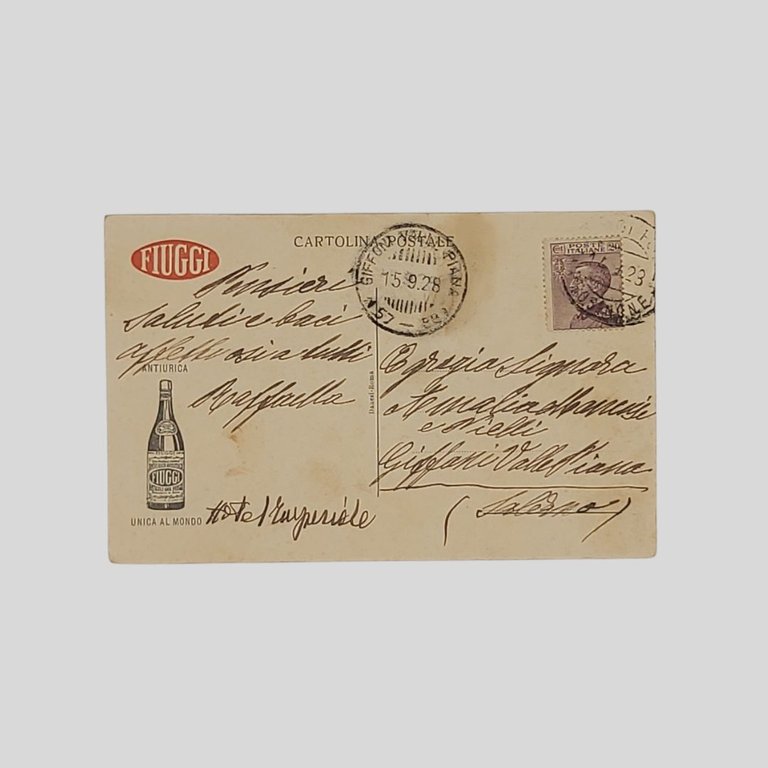 FIUGGI
CARTOLINA POSTALE
GIFFONI VALLE PIANA
15.9.28
POSTE ITALIANE
Pensieri
saluti e baci
affettuosi a tutti
Raffaella
ANTIURICA
FIUGGI
UNICA AL MONDO
Hotel Imperiale
Danesi-Roma
Egregia Signora
Amalia
e Nielli
Giffoni Valle Piana
(Salerno)